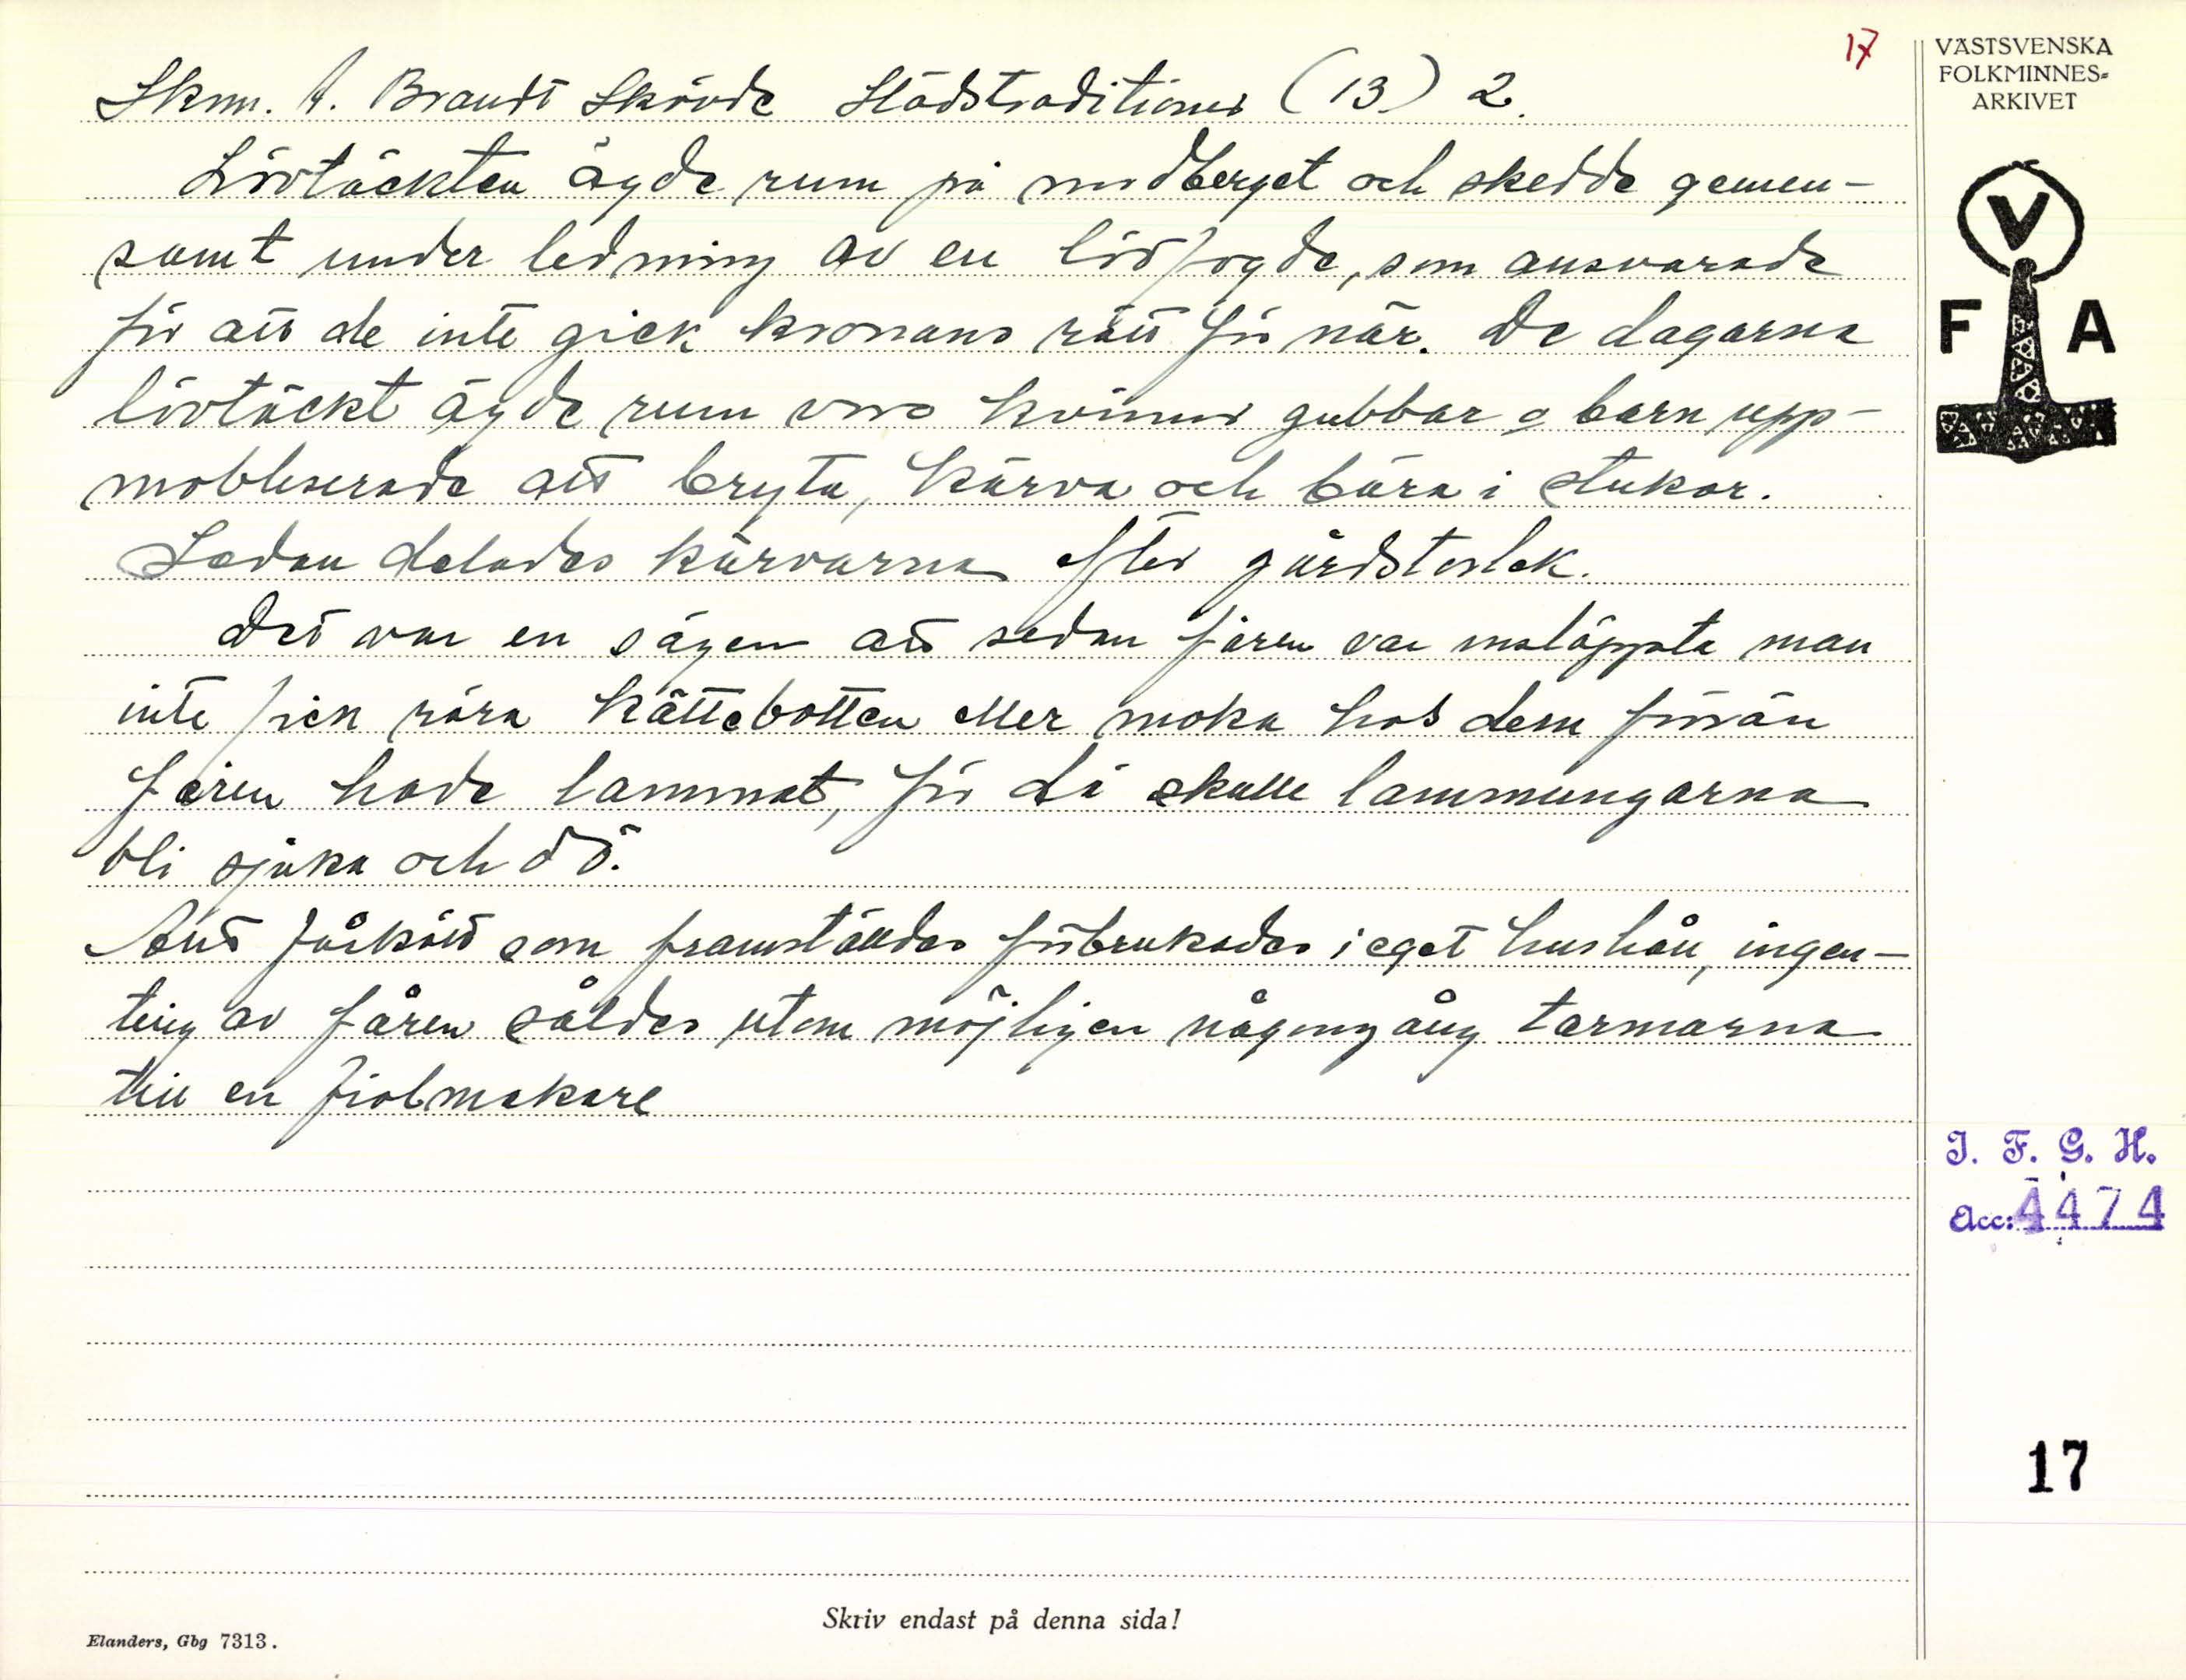 17
VÄSTSVENSKA
FOLKMINNES-
ARKIVET
Skm. A. Brandt Skövde Stadstraditioner (13) 2.
Lövtäckten ägde rum på nordberget och skedde gemen-
samt under ledning av en lövfogde, som ansvarade
för att de inte gick kronans rätt för när. De dagarna
lövtäckt ägde rum voro kvinnor gubbar o barn upp-
mobliserade att bryta, kärva och bära i stukor.
Sedan delades kärvarna efter gårdstorlek.
Det var en sägen att sedan fåren var insläppta man
inte fick röra kättebotten eller moka hos dem förrän
fåren hade lammat, för då skulle lammungarna
bli sjuka och dö.
Allt fårkött som framställdes förbrukades i eget hushåll, ingen-
ting av fåren såldes utom möjligen någongång tarmarna
till en fiolmakare
V
F A
I. F. G. H.
Acc: 4474
17
Skriv endast på denna sida!
Elanders, Gbg 7313.